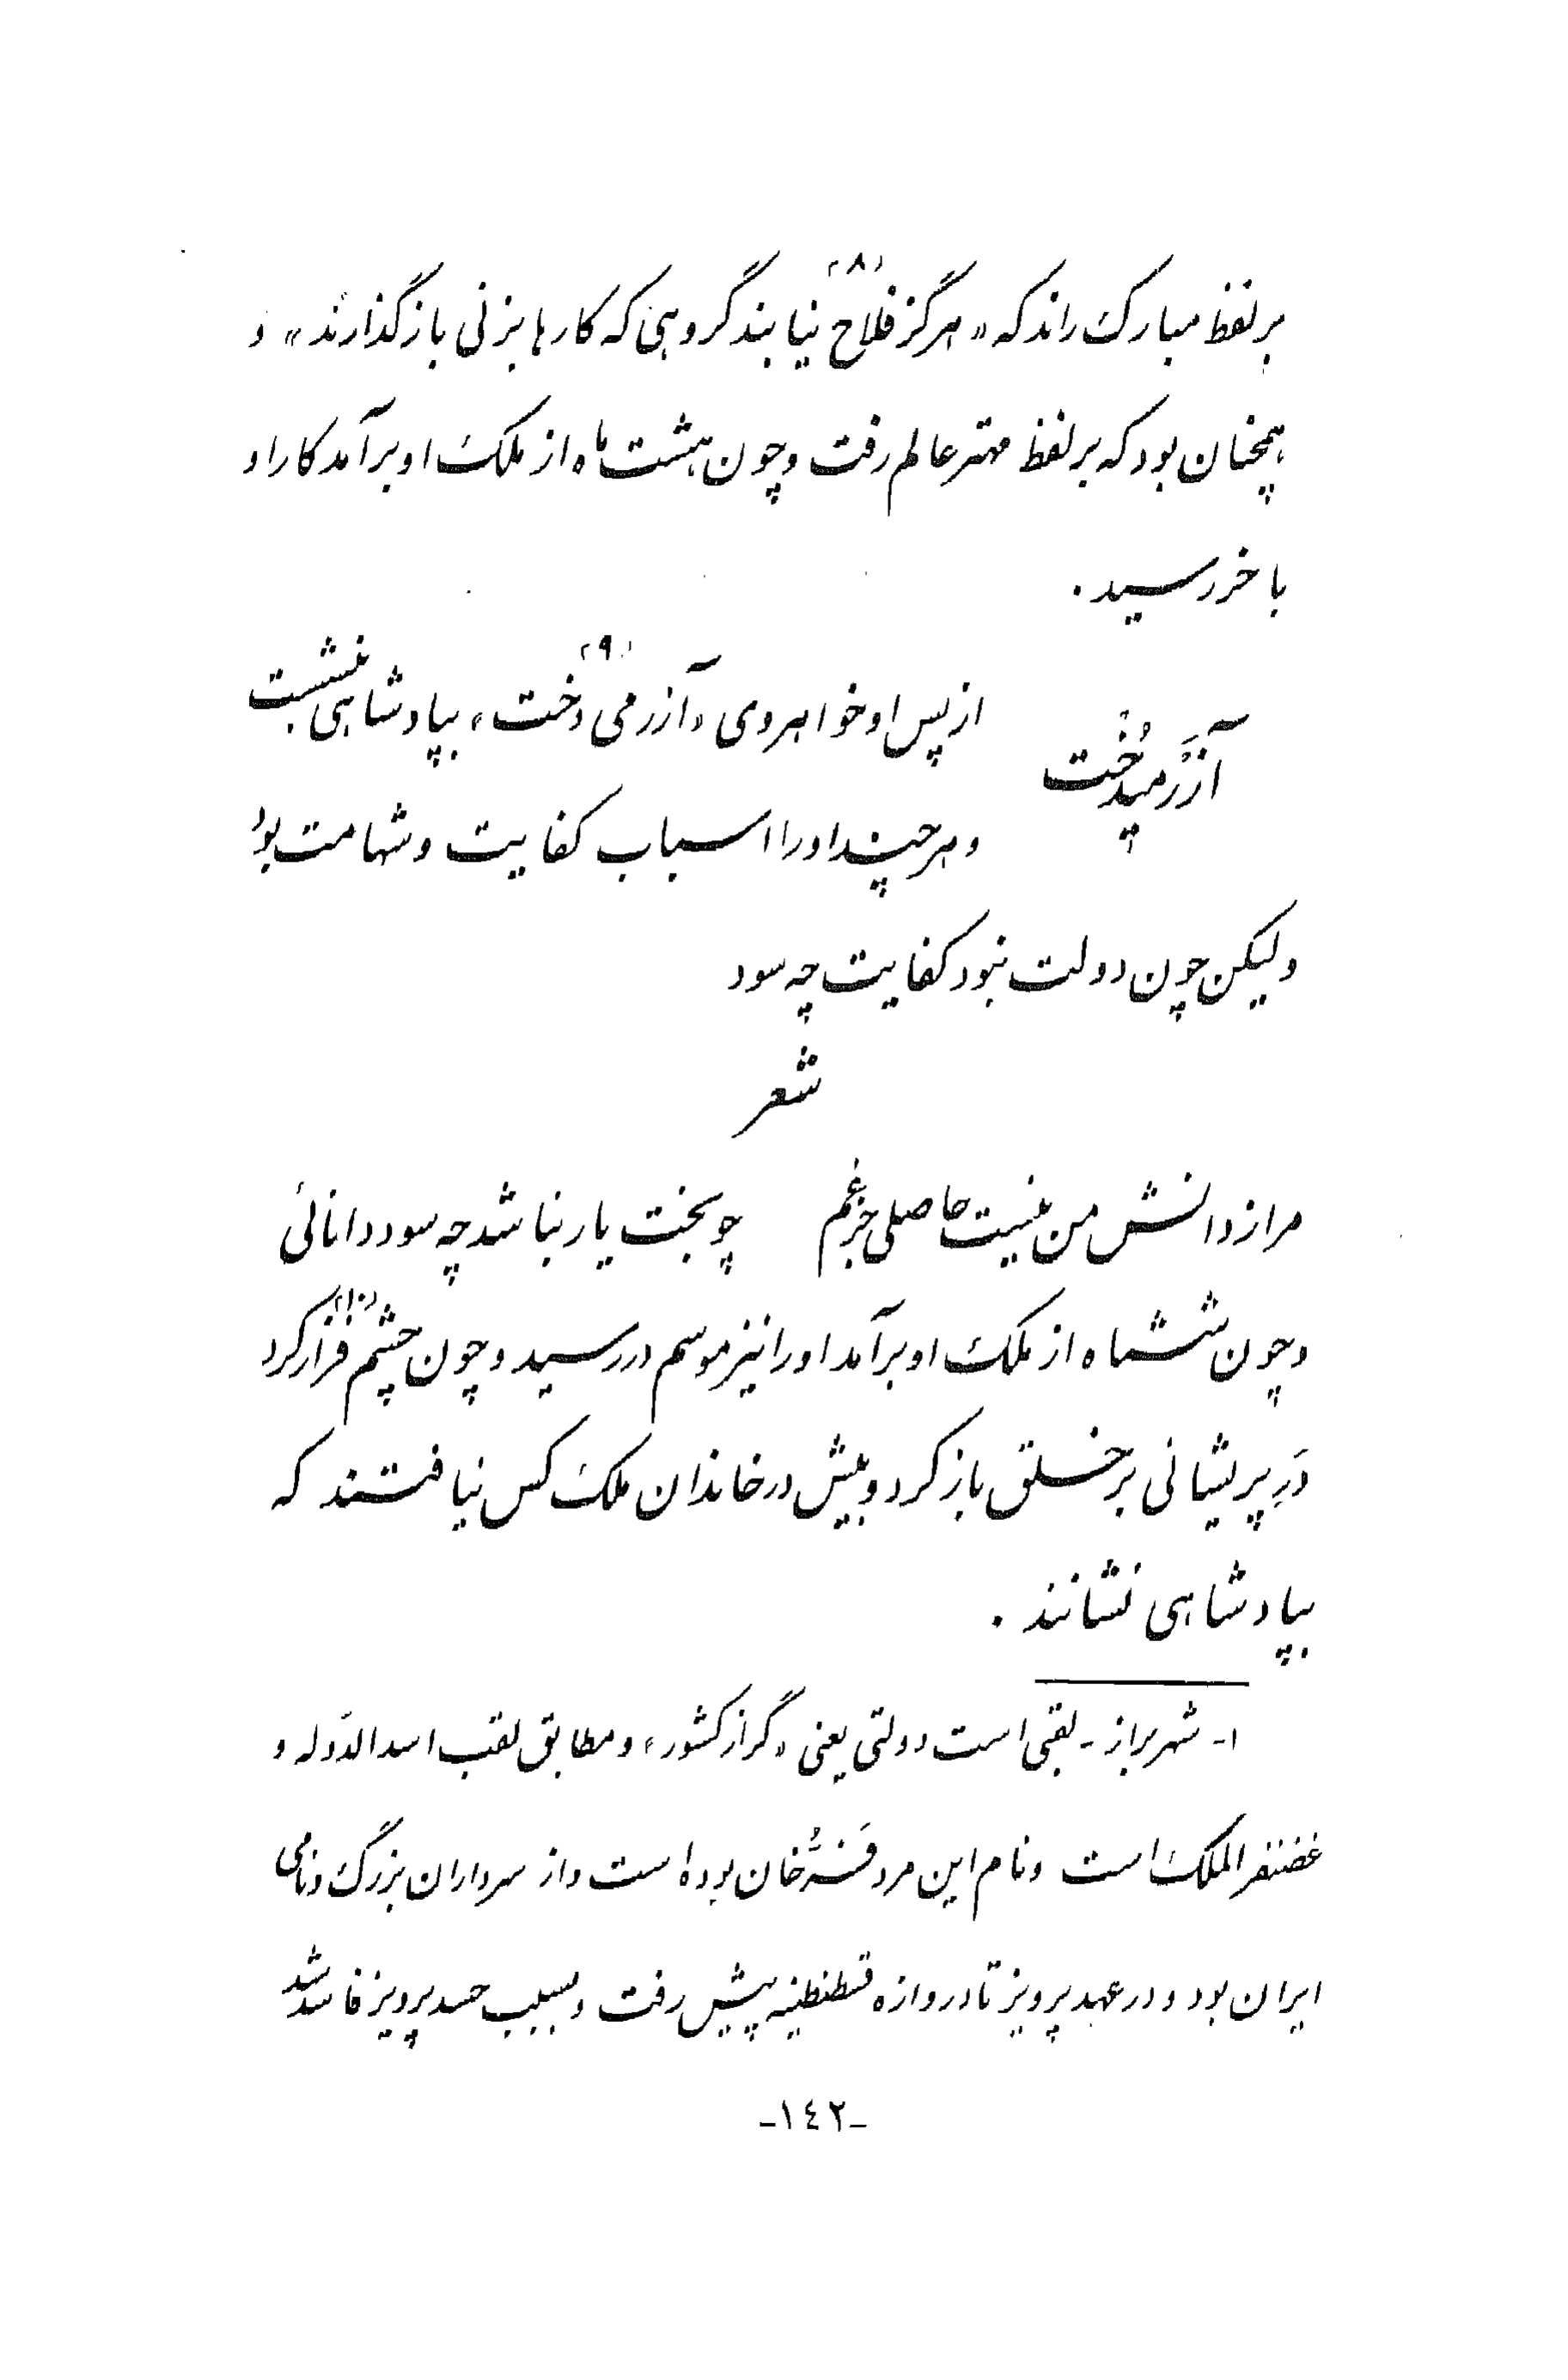 بر لفظ مبارک راند که «هرگز فلاح (۸) نیابند گروهی که کارها بزنی بازگذارند» و
همچنان بود که بر لفظ مهتر عالم رفت و چون هشت ماه از ملک او برآمد کار او
باخر رسید .
آزَرْمیدُخت
از پس او خواهر وی «آزرمی دخت» (۹) بپادشاهی بنشست
و هر چند او را اسباب کفایت و شهامت بود
ولیکن چون دولت نبود کفایت چه سود
شعر
مرا ز دانش من نیست حاصلی جز غم چو بخت یار نباشد چه سود دانائی
و چون ششماه از ملک او برآمد او را نیز موسم در رسید و چون چشم فراز (۱۰) کرد
دَرِ پریشانی بر خلق باز کرد و بیش در خاندان ملک کس نیافتند که
بپادشاهی نشانند .
۱- شهربراز - لقبی است دولتی یعنی «گراز کشور» و مطابق لقب اسدالدّوله و
غضنفرالملک است و نام این مرد فَرُّخان بوده است و از سرداران بزرگ و نامی
ایران بود و در عهد پرویز تا دروازه قسطنطنیه پیش رفت و بسبب حسد پرویز فاسد شد
-۱٤۲-